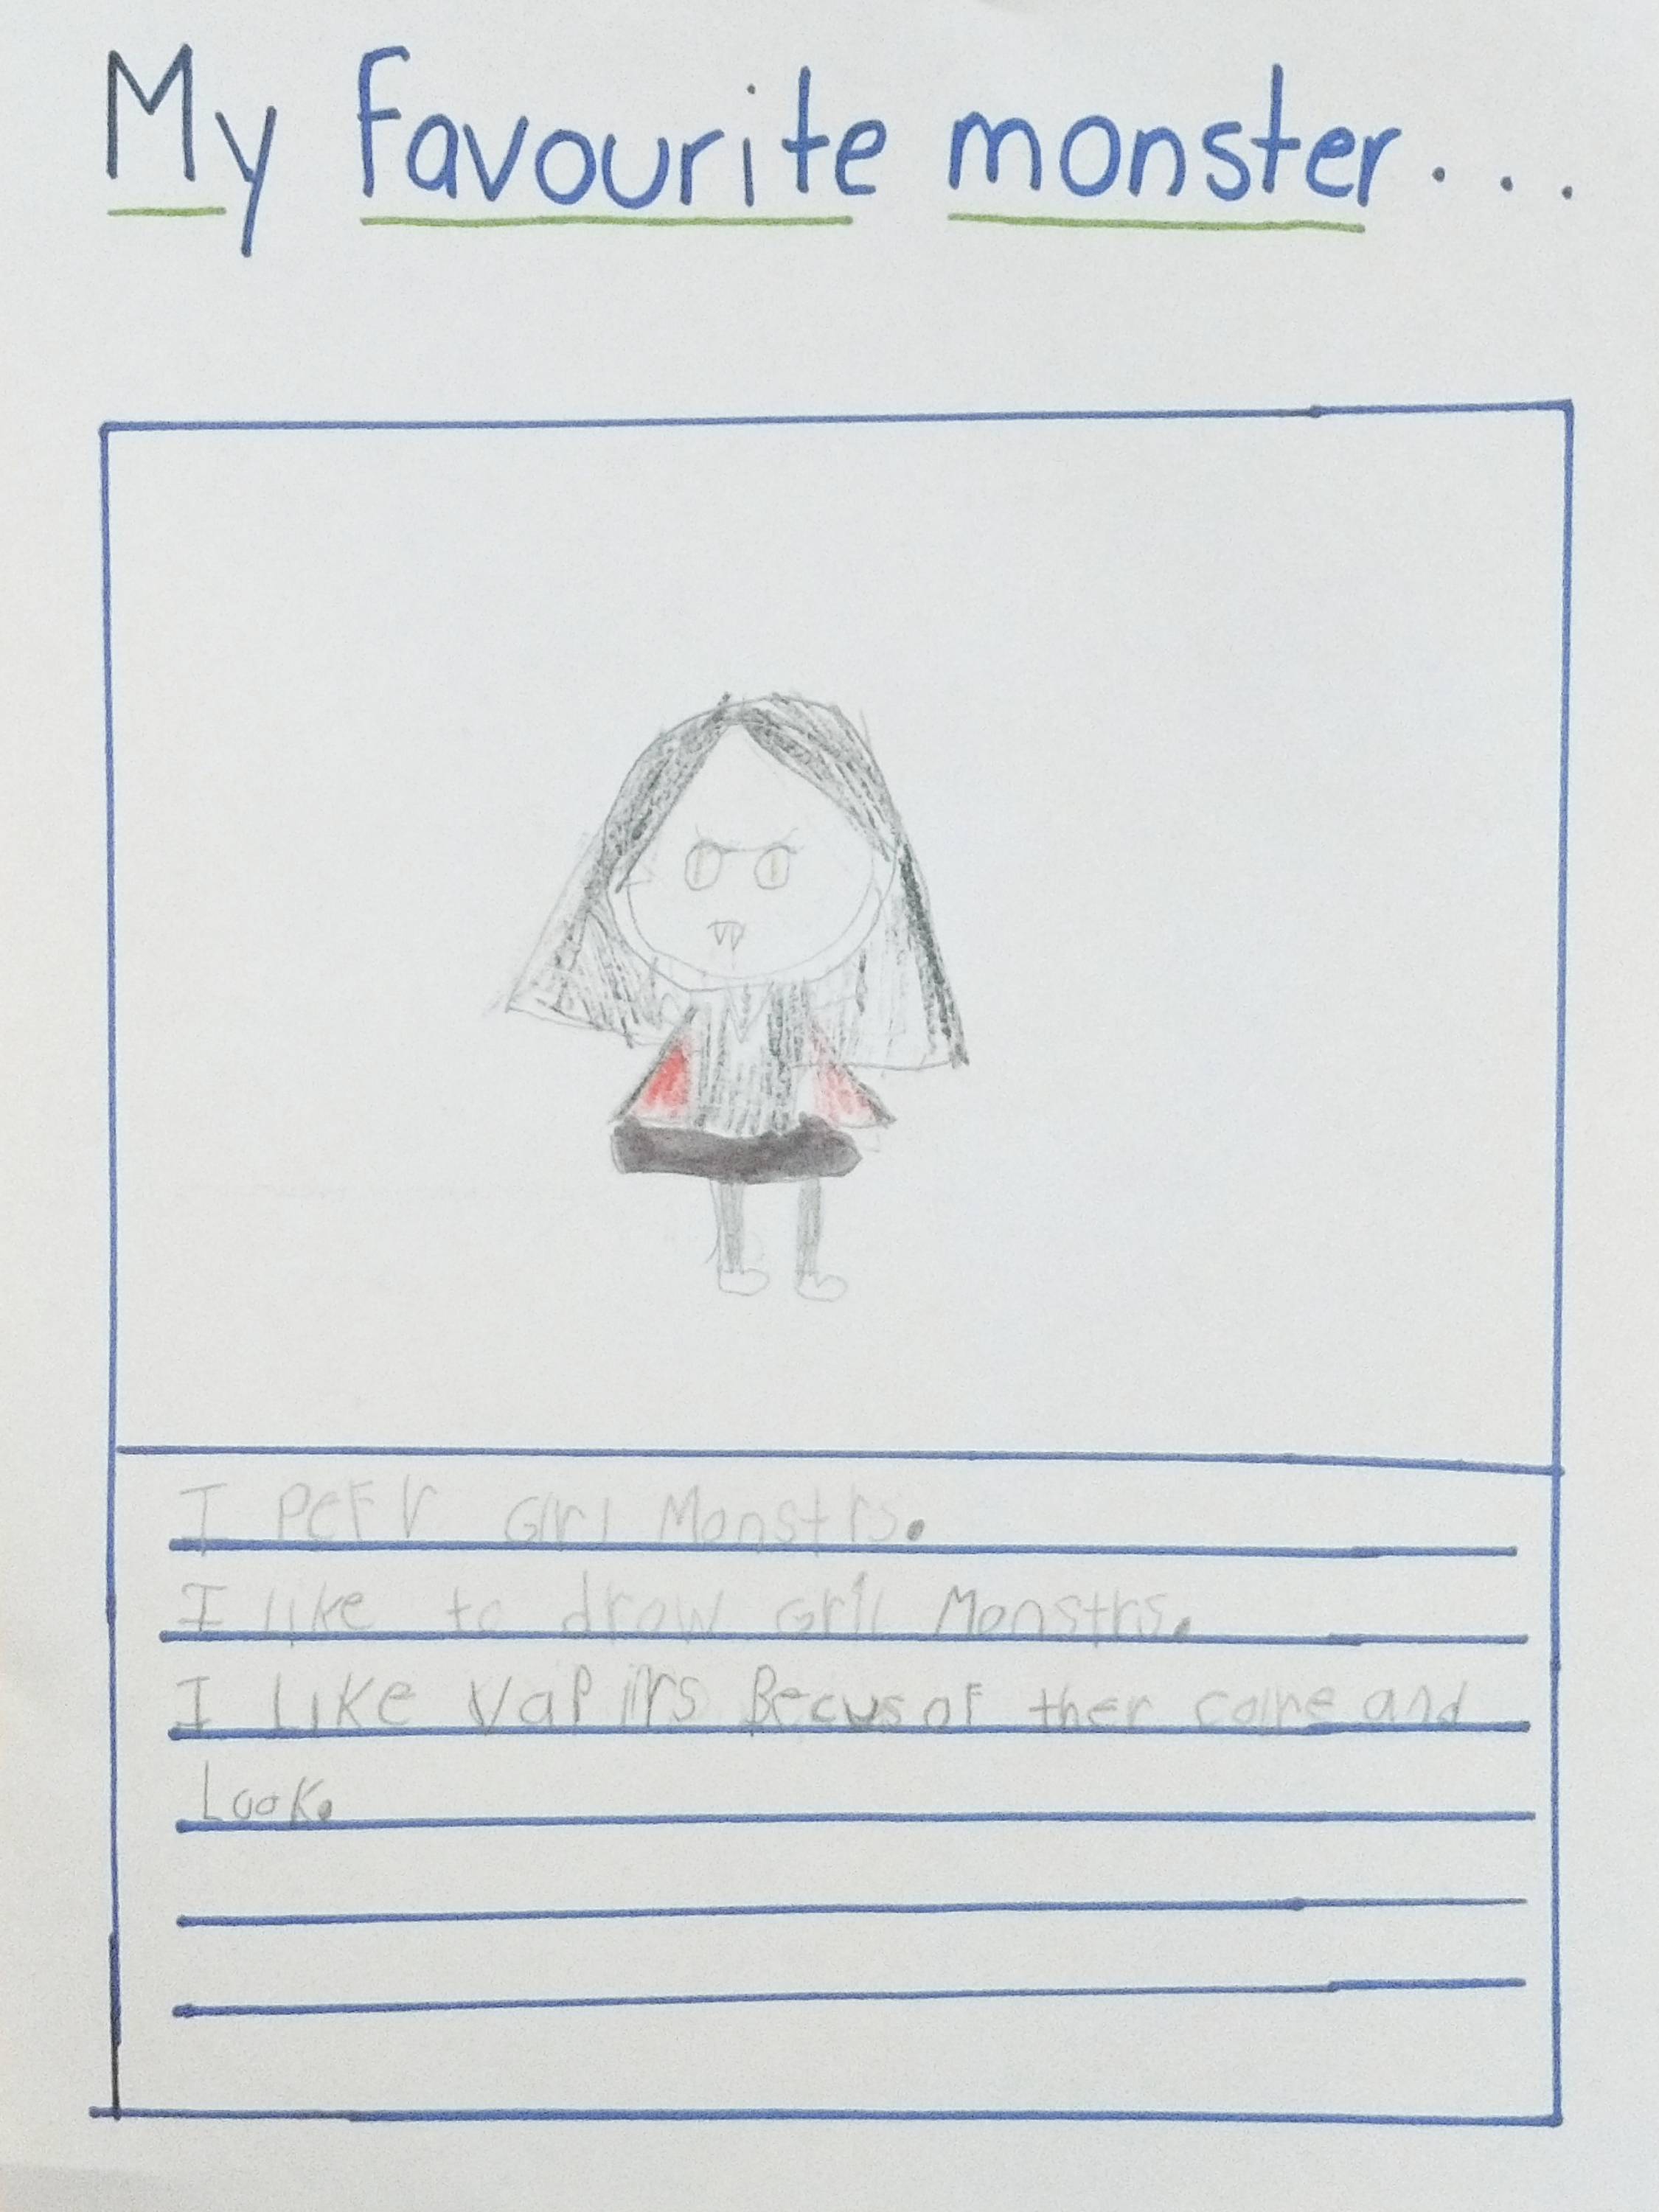 My favourite monster...
I PeFr Girl Monstrs.
I like to drow Gril Monstrs.
I Like Vapiirs Becus of ther colre and
Look.